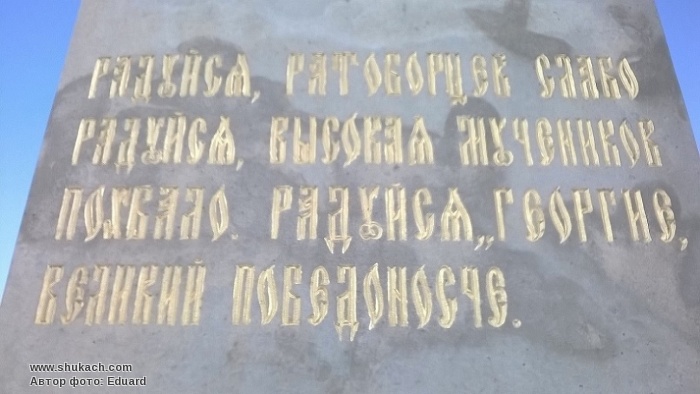 РАДУЙСѦ, РАТОБОРЦЕВ СЛАВО
РАДУЙСѦ, ВЫСОКАѦ МУЧЕНИКОВ
ПОХВАЛО. РАДУЙСѦ,, ГЕОРГИЕ,
ВЕЛИКИЙ ПОБЕДОНОСЧЕ.
www.shukach.com
Автор фото: Eduard